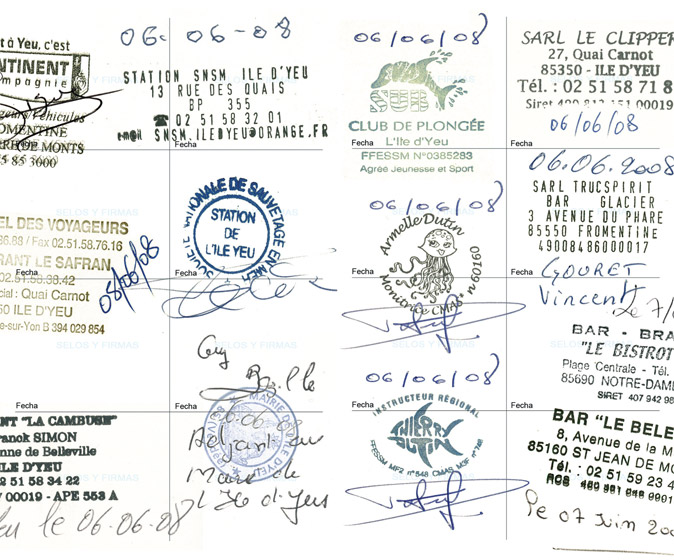 t à Yeu, c'est
NTINENT
mpagnie
OMENTINE
85 3000
06.06-08
STATION SNSM ILE D'YEU
13 RUE DES QUAIS
BP 355
☎ 02 51 58 32 01
SNSM.ILEDYEU@ORANGE.FR
Fecha
06/06/08
SUB
CLUB DE PLONGÉE
L'Ile d'Yeu
FFESSM N°0385283
Agréé Jeunesse et Sport
Fecha
SARL LE CLIPPER
27, Quai Carnot
85350 - ILE D'YEU
Tél. : 02 51 58 71 8
Siret
00019
06/06/08
Fecha
EL DES VOYAGEURS
86.88 / Fax 02.51.58.76.16
RANT LE SAFRAN
02.51.58.38.42
cial : Quai Carnot
50 ILE D'YEU
e-sur-Yon B 394 029 854
08/06/08
SELOS Y FIRMAS
Fecha
NATIONALE DE SAUVETAGE EN MER
STATION
DE
L'ILE YEU
Fecha
SELOS Y FIRMAS
06/06/08
Armelle Dutin
Monitrice CMAS n°60160
Fecha
SELOS Y FIRMAS
06.06.2008
SARL TRUCSPIRIT
BAR GLACIER
3 AVENUE DU PHARE
85550 FROMENTINE
49008486000017
Fecha
GOURET
Vincent
Le 7/
NT "LA CAMBUSE"
ranck SIMON
enne de Belleville
ILE D'YEU
51 58 34 22
00019 - APE 553 A
le 06.06.08
Fecha
Guy
06.06.08
MAIRIE
Adjoint au
Maire de
l'Ile d'Yeu
Fecha
06/06/08
INSTRUCTEUR RÉGIONAL
THIERRY
DUTIN
Fecha
BAR - BRA
"LE BISTROT
Place Centrale - Tél.
85690 NOTRE-DAME
SIRET 407 942 98
Fecha
BAR "LE BELE
8, Avenue de la M
85160 ST JEAN DE MO
Tél. : 02 51 59 23 4
Le 07 Juin 200